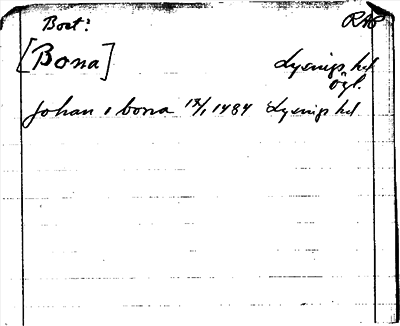 Bort: RAP
[Bona] Lysings hd
Ögl.
Johan i bona 12/1 1484 Lysings hd